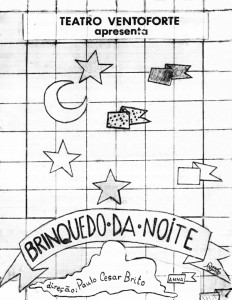 TEATRO VENTOFORTE
apresenta
BRINQUEDO·DA·NOITE
direção: Paulo Cesar Brito
ANNA